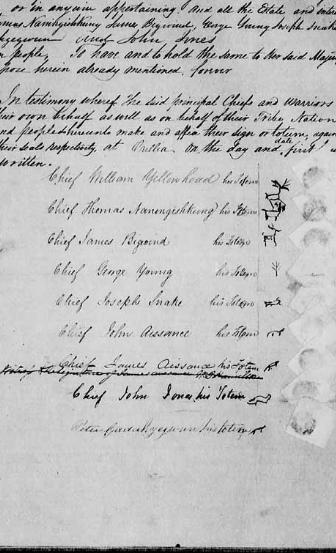 or in anywise appertaining to and all the Estate and
Nanigishkung James Bigwind, George Young Joseph Snake
and John Jones
People. To have and to hold the same to Her said Majesty
herein already mentioned, forever
In testimony whereof the said principal Chiefs and Warriors
own behalf as well as on behalf of their Tribe, Nation
and people hereunto make and affix their sign or totem,
seals respectively at Orillia on the day and date first
written.
Chief William Yellowhead his Totem
Chief Thomas Nanengishkung his Totem
Chief James Bigwind his Totem
Chief George Young his Totem
Chief Joseph Snake his Totem
Chief John Aissance his Totem
Chief James Aissance his Totem
Chief John Jones his Totem
Peter his totem